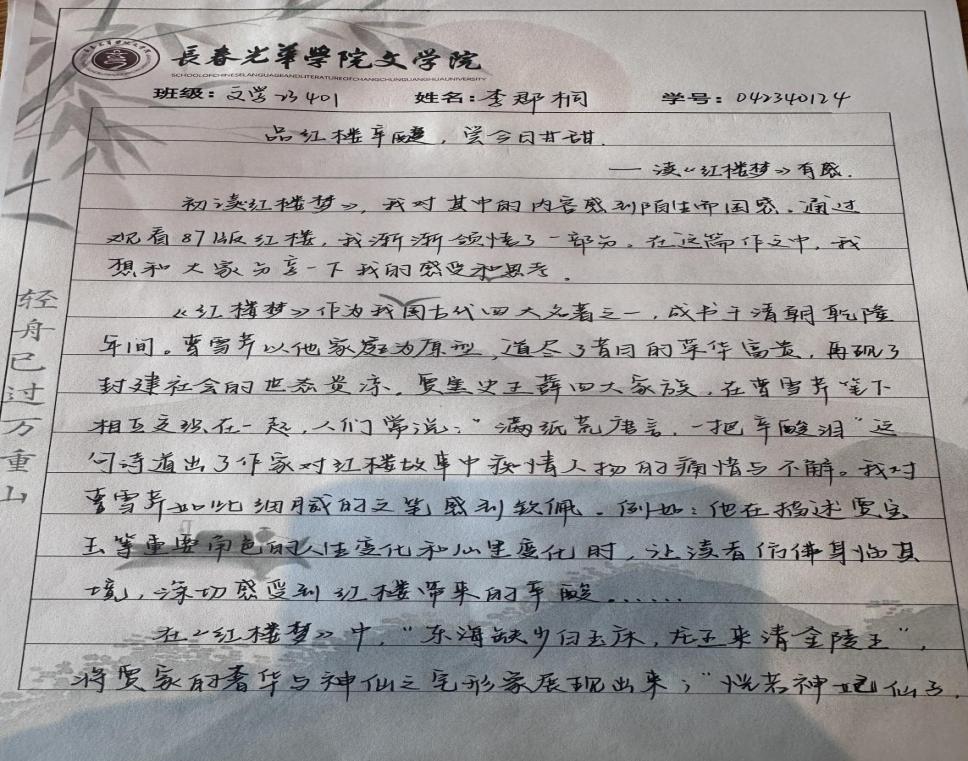 長春光華學院文学院
SCHOOLOFCHINESELANGUAGEANDLITERATUREOFCHANGCHUNGUANGHUAUNIVERSITY
班级：文学23401 姓名：李郡桐 学号：042340124
品红楼辛酸，尝今日甘甜.
——读《红楼梦》有感.
初读红楼梦》，我对其中的内容感到陌生而困惑。通过
观看87版红楼，我渐渐领悟了一部分。在这篇作文中，我
想和大家分享一下我的感受和思考。
《红楼梦》作为我国古代四大名著之一，成书于清朝乾隆
年间。曹雪芹以他家庭为原型，道尽了昔日的荣华富贵，再现了
封建社会的世态炎凉。贾史王薛四大家族，在曹雪芹笔下
相互交织在一起，人们常说：“满纸荒唐言，一把辛酸泪”这
句诗道出了作家对红楼故事中痴情人物的痛惜与不解。我对
曹雪芹如此细腻的文笔感到钦佩。例如：他在描述贾宝
玉等重要角色的人生变化和心里变化时，让读者仿佛身临其
境，深切感受到红楼带来的辛酸......
在《红楼梦》中，“东海缺少白玉床，龙王来请金陵王”，
将贾家的奢华与神仙之宅形象展现出来；“恍若神妃仙子，
轻舟已过万重山